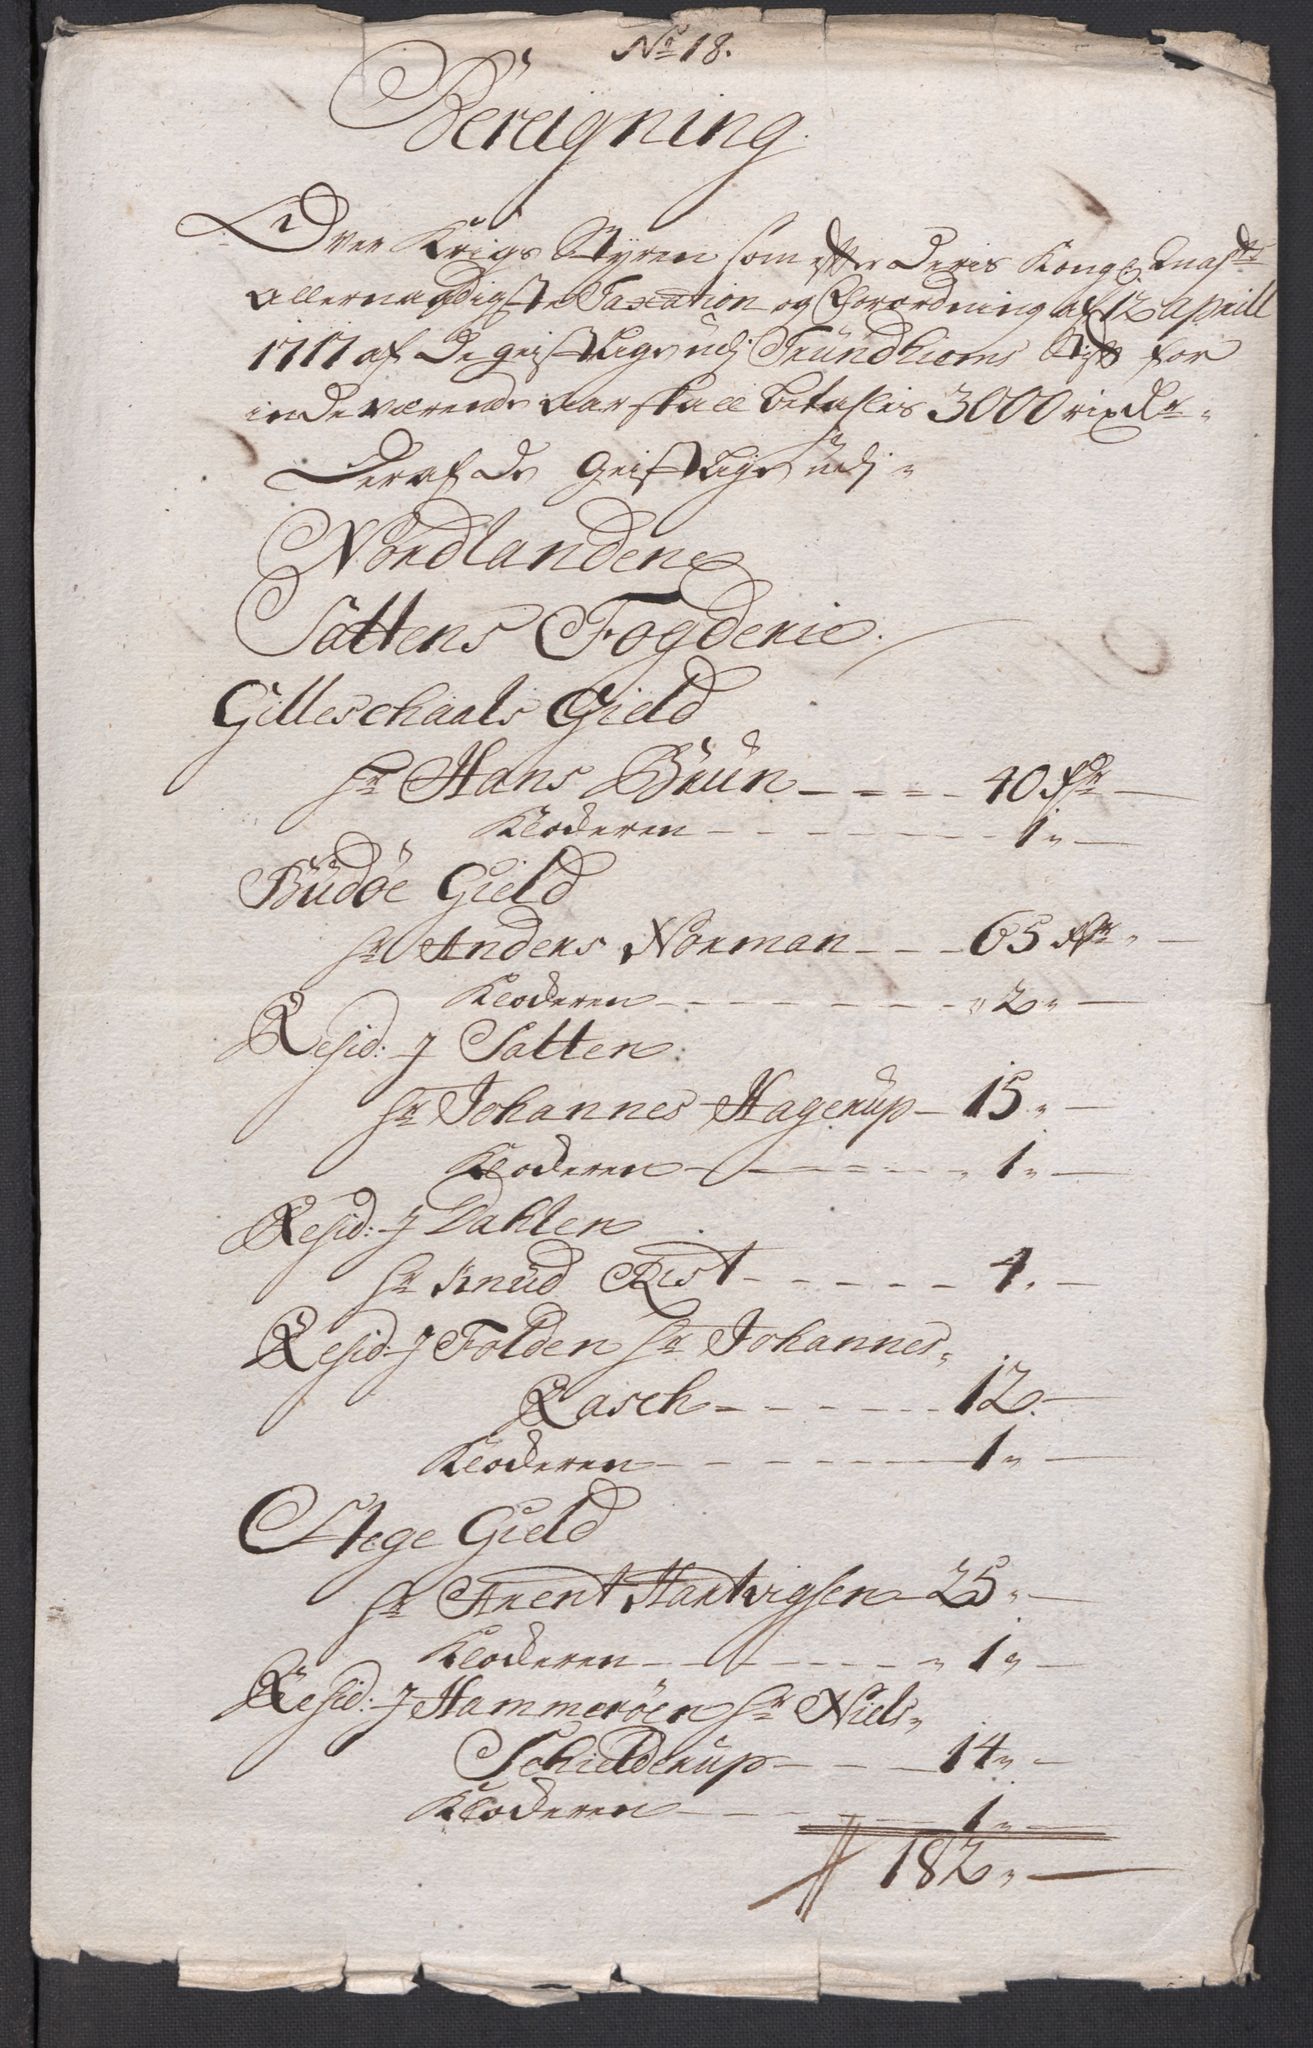 No 18.
Bereigning
Over Krigs Styren som efter Deris Kongl Mayts
allernaadigste Taxation og Forordning af 12 aprill
1717 af De geistlige udj Trundhiems Stift for
indeværende aar skall betahlis 3000 rixdr
Deraf De Geistlige udj
Nordlandene
Saltens Fogderie.
Gilleschaals Gield
Hr Hans Brun - - - - 40 Rdr
Klocheren - - - - 1 -
Budøe Gield
Hr Anders Norman - - 65 Rdr
Klocheren - - - - 2 -
Resid: J Salten
Hr Johannes Hagerup - 15 -
Klocheren - - - - 1 -
Resid: J Dahlen
Hr Knud Rist - - - - 4 -
Resid: J Folden Hr Johannes
Rasch - - - - 12 -
Klocheren - - - - 1 -
Stege Gield
Hr Arent Hartvigsen - 25 -
Klocheren - - - - 1 -
Resid: J Hammerøen Hr Niels
Schielderup - - - 14 -
Klocheren - - - - 1 -
182 -